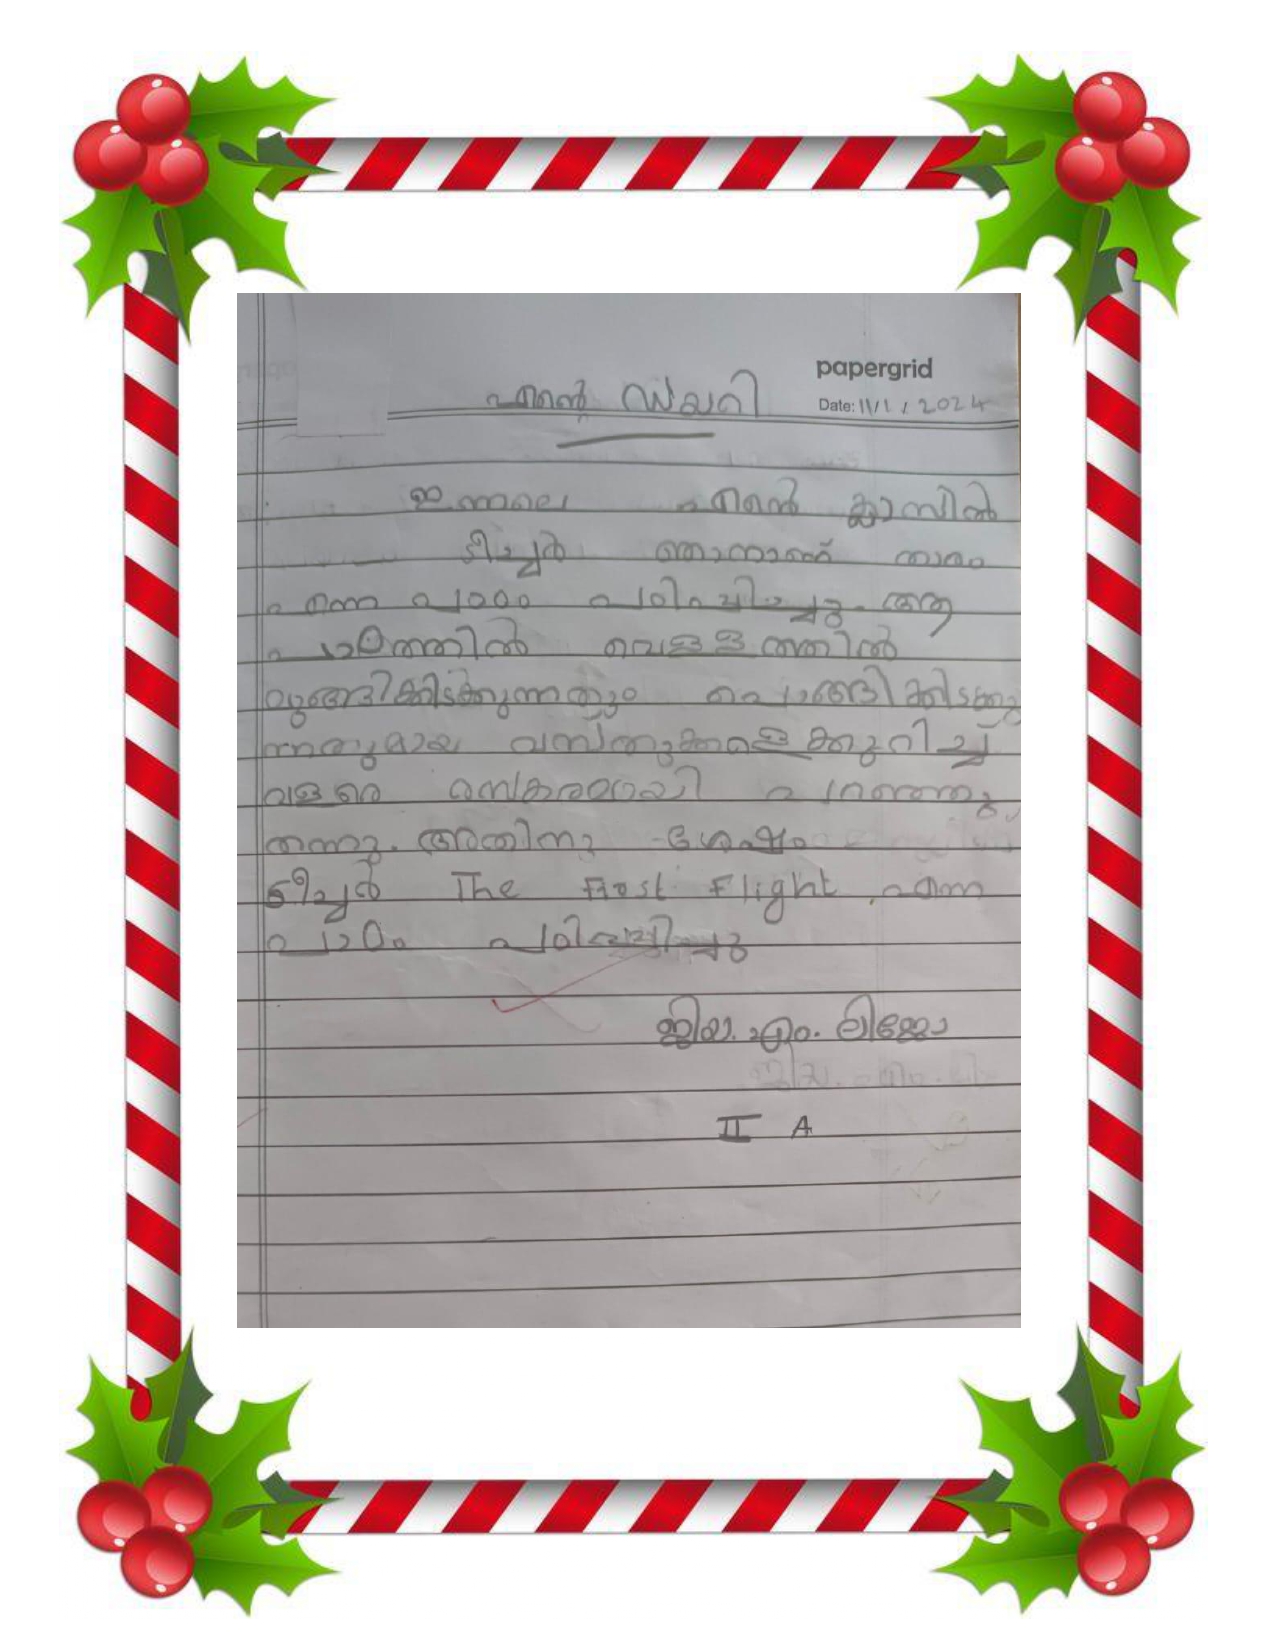 papergrid
എന്റെ ഡയറി
Date: 11/1/2024
ഇന്നലെ എന്റെ ക്ലാസിൽ
ടീച്ചർ ഞാനാണ് താരം
എന്ന പാഠം പഠിപ്പിച്ചു. ആ
പാഠത്തിൽ വെള്ളത്തിൽ
മുങ്ങികിടക്കുന്നതും പൊങ്ങികിടക്കു
ന്നതുമായ വസ്തുക്കളെക്കുറിച്ച്
വളരെ രസകരമായി പറഞ്ഞു
തന്നു. അതിനു ശേഷം
ടീച്ചർ The First Flight എന്ന
പാഠം പഠിപ്പിച്ചു
ജിയ. എം. ലിജോ
II A